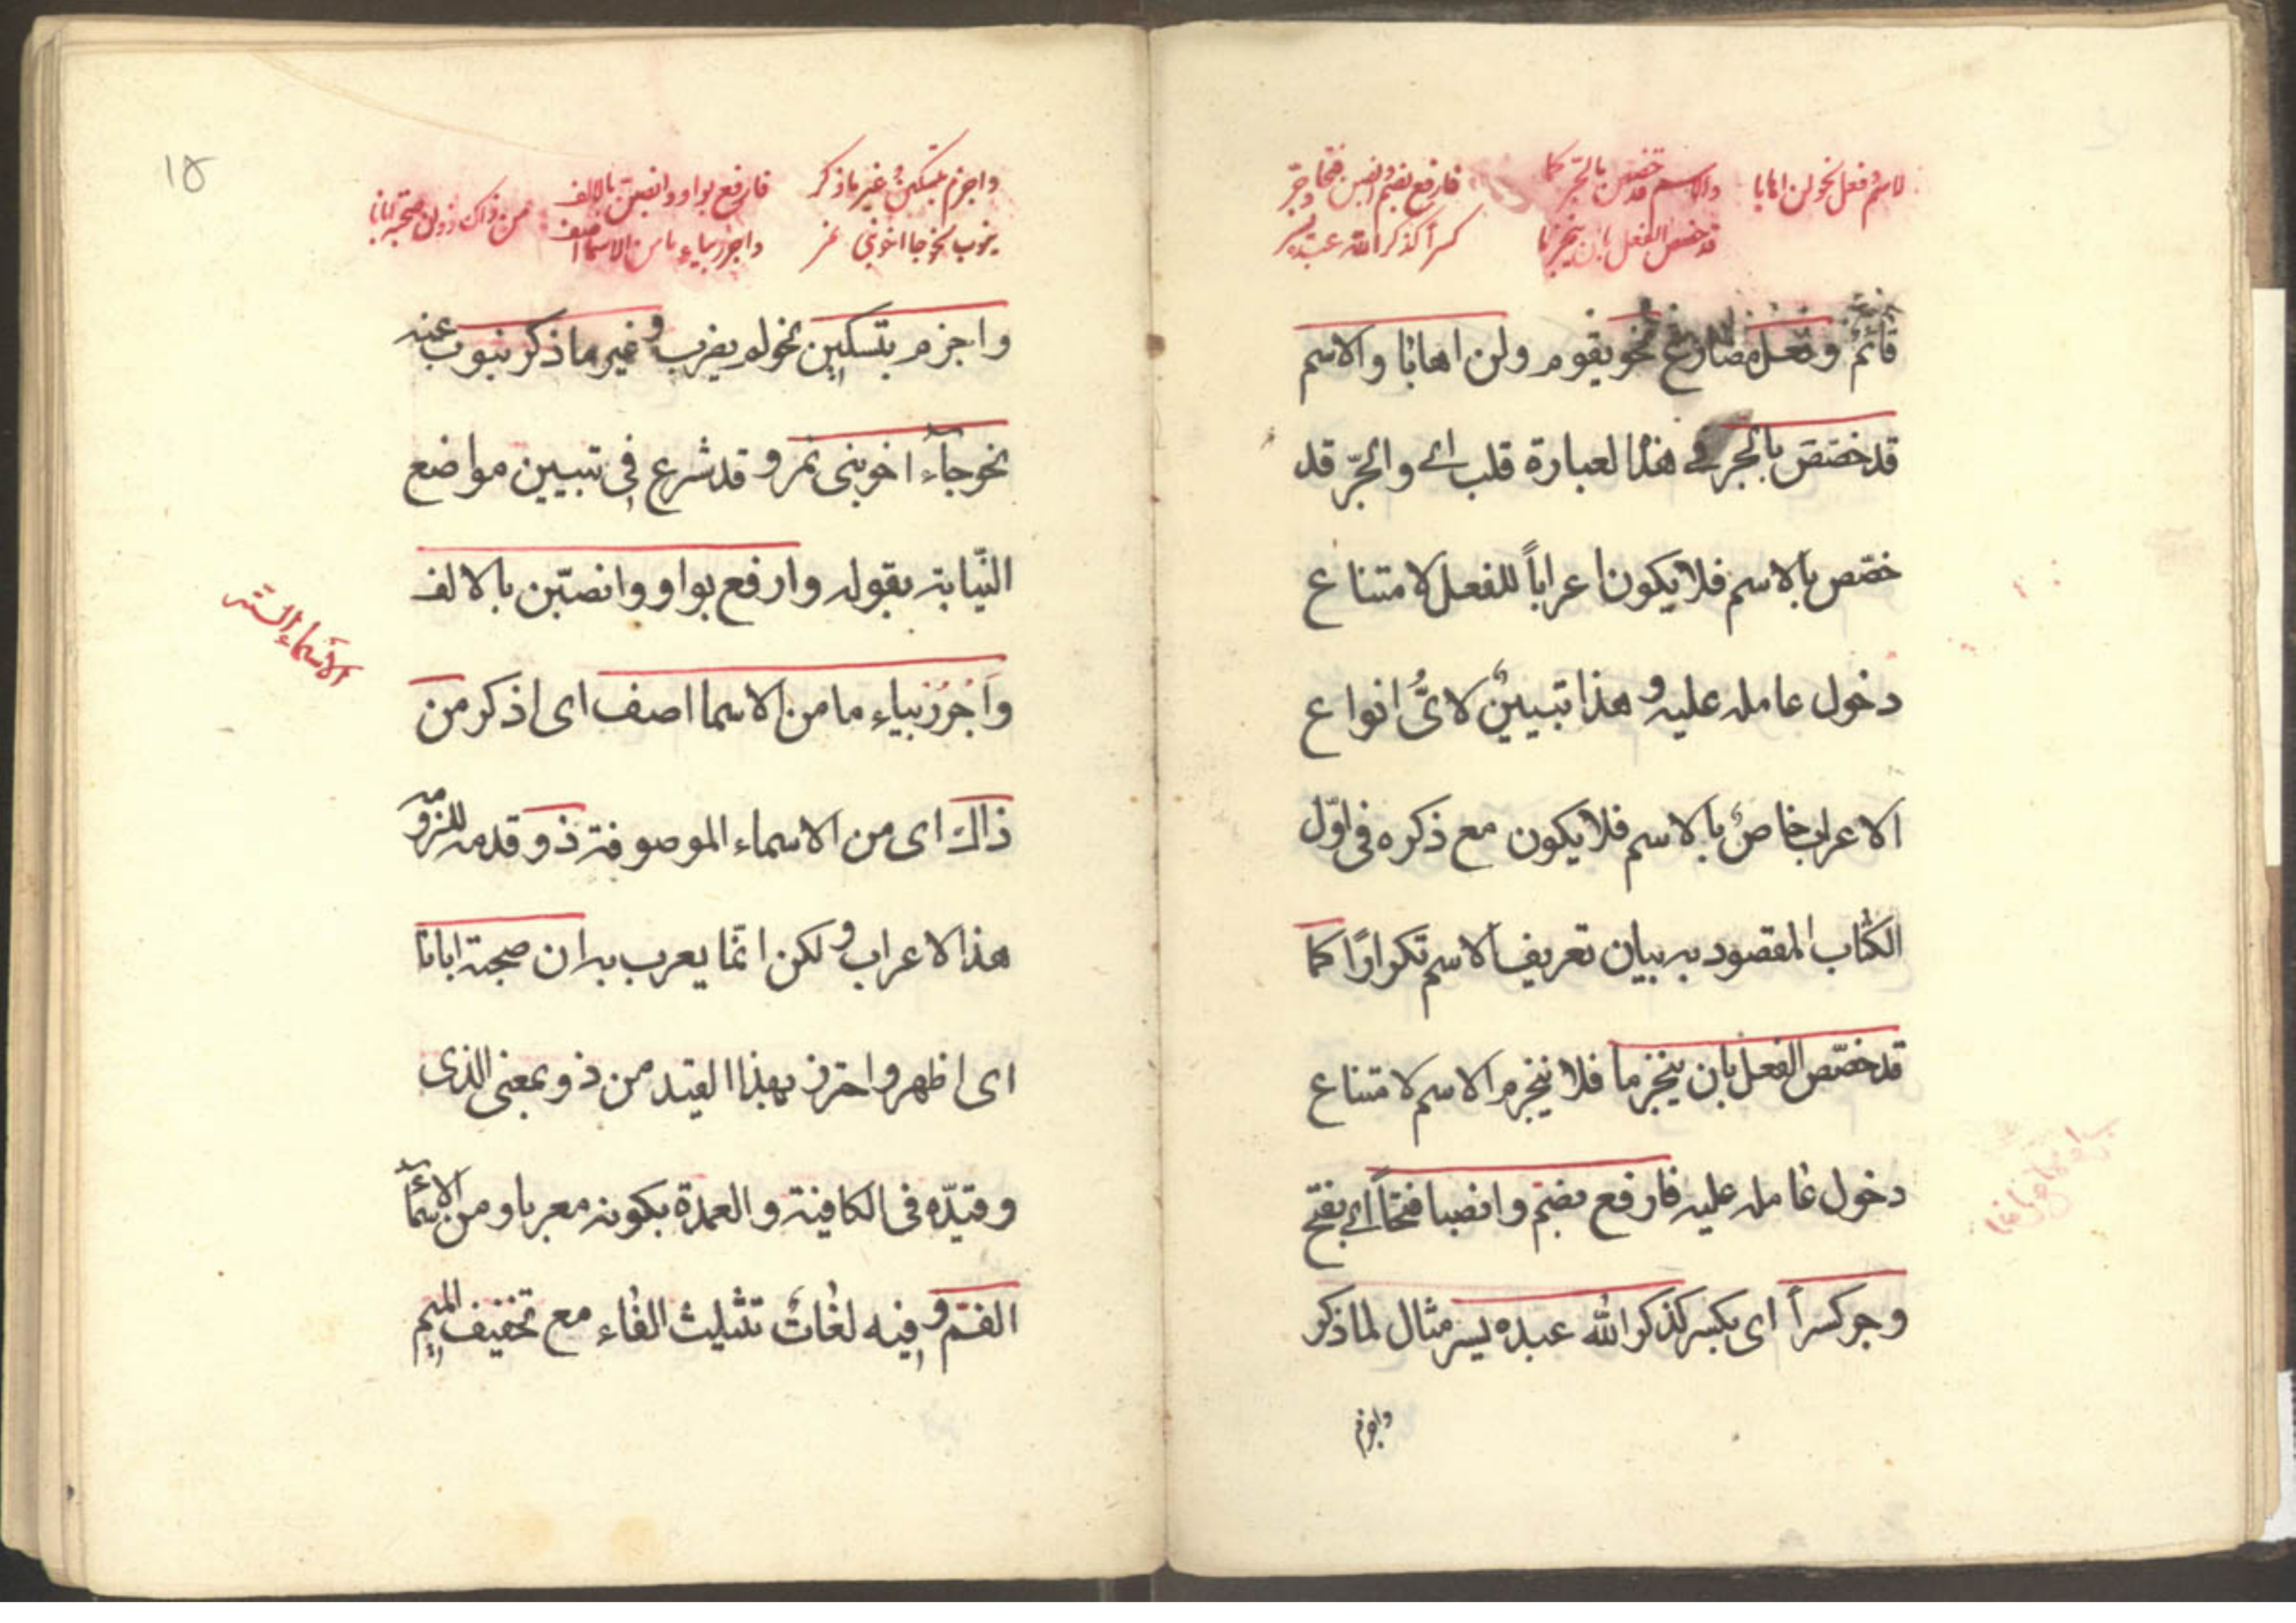 لاسم وفعل نحو لن اهابا
والاسم قد خصص بالجر كما
قد خصص الفعل بان ينجزما
فارفع بضم وانصبن فتحا وجر
كسرا كذكر الله عبده يسر
قائم وفعل مضارع نحو يقوم ولن اهابا والاسم
قد خصص بالجر في هذا لعبارة قلب اي والجرّ قد
خصّص بالاسم فلا يكون اعراباً للفعل لامتناع
دخول عامله عليه وهذا تبيينٌ لايُّ انواع
الاعراب خاصٌ بالاسم فلا يكون مع ذكره في اوّل
الكتاب المقصود به بيان تعريف الاسم تكرارًا كما
قد خصّص الفعل بان ينجزما فلا ينجزم الاسم لامتناع
دخول عامله عليه فارفع بضم وانصبا فتحاً اي بفتح
وجر كسراً اى بكسر كذكر الله عبده يسر مثال لما ذكر
واجزم
١٥
واجزم بتسكين وغير ما ذكر
ينوب نحو جا اخو بني نمر
فارفع بواو وانصبن بالالف
واجرر بياء ما من الاسما اصف
من ذاك ذو ان صحبة ابانا
واجزم بتسكين نحو لم يضرب وغير ما ذكر ينوب عنه
نحو جآء اخو بنى نمر وقد شرع فى تبيين مواضع
النّيابة بقوله وارفع بواو وانصبّن بالالف
وَاجْرُرْ بياء ما من الاسما اصف اى اذكر من
ذاك اى من الاسماء الموصوفة ذو قدمه للزومه
هذا الاعراب ولكن انّما يعرب به ان صحبة ابانا
اى اظهر واحترز بهذا القيد من ذو بمعنى الذى
وقيّده فى الكافية والعمدة بكونه معربا ومن الاسمآء
الفم وفيه لغاتٌ تثليث الفاء مع تخفيف الميم
الاسماء الستة